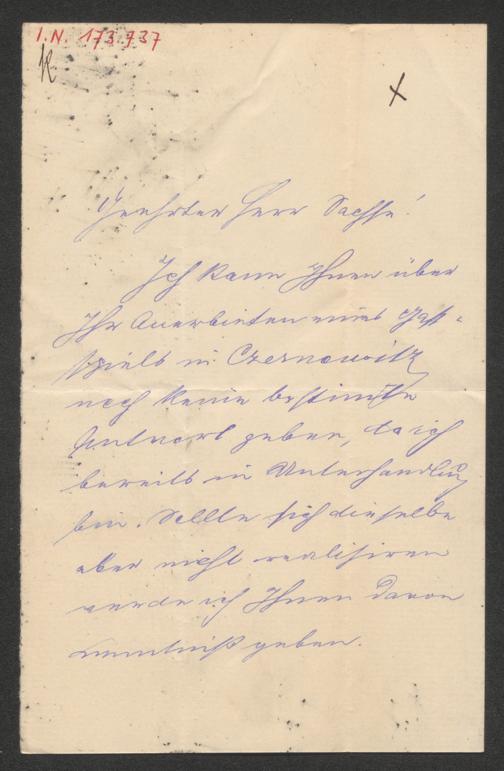 I.N. 173.737
Geehrter Herr Sachse!
Ich kann Ihnen über
Ihr Anerbieten eines Gast-
spiels in Czernowitz
noch keine bestimte
Antwort geben, da ich
bereits in Unterhandlung
bin. Sollte sich dieselbe
aber nicht realisiren
werde ich Ihnen davon
Kenntniß geben.